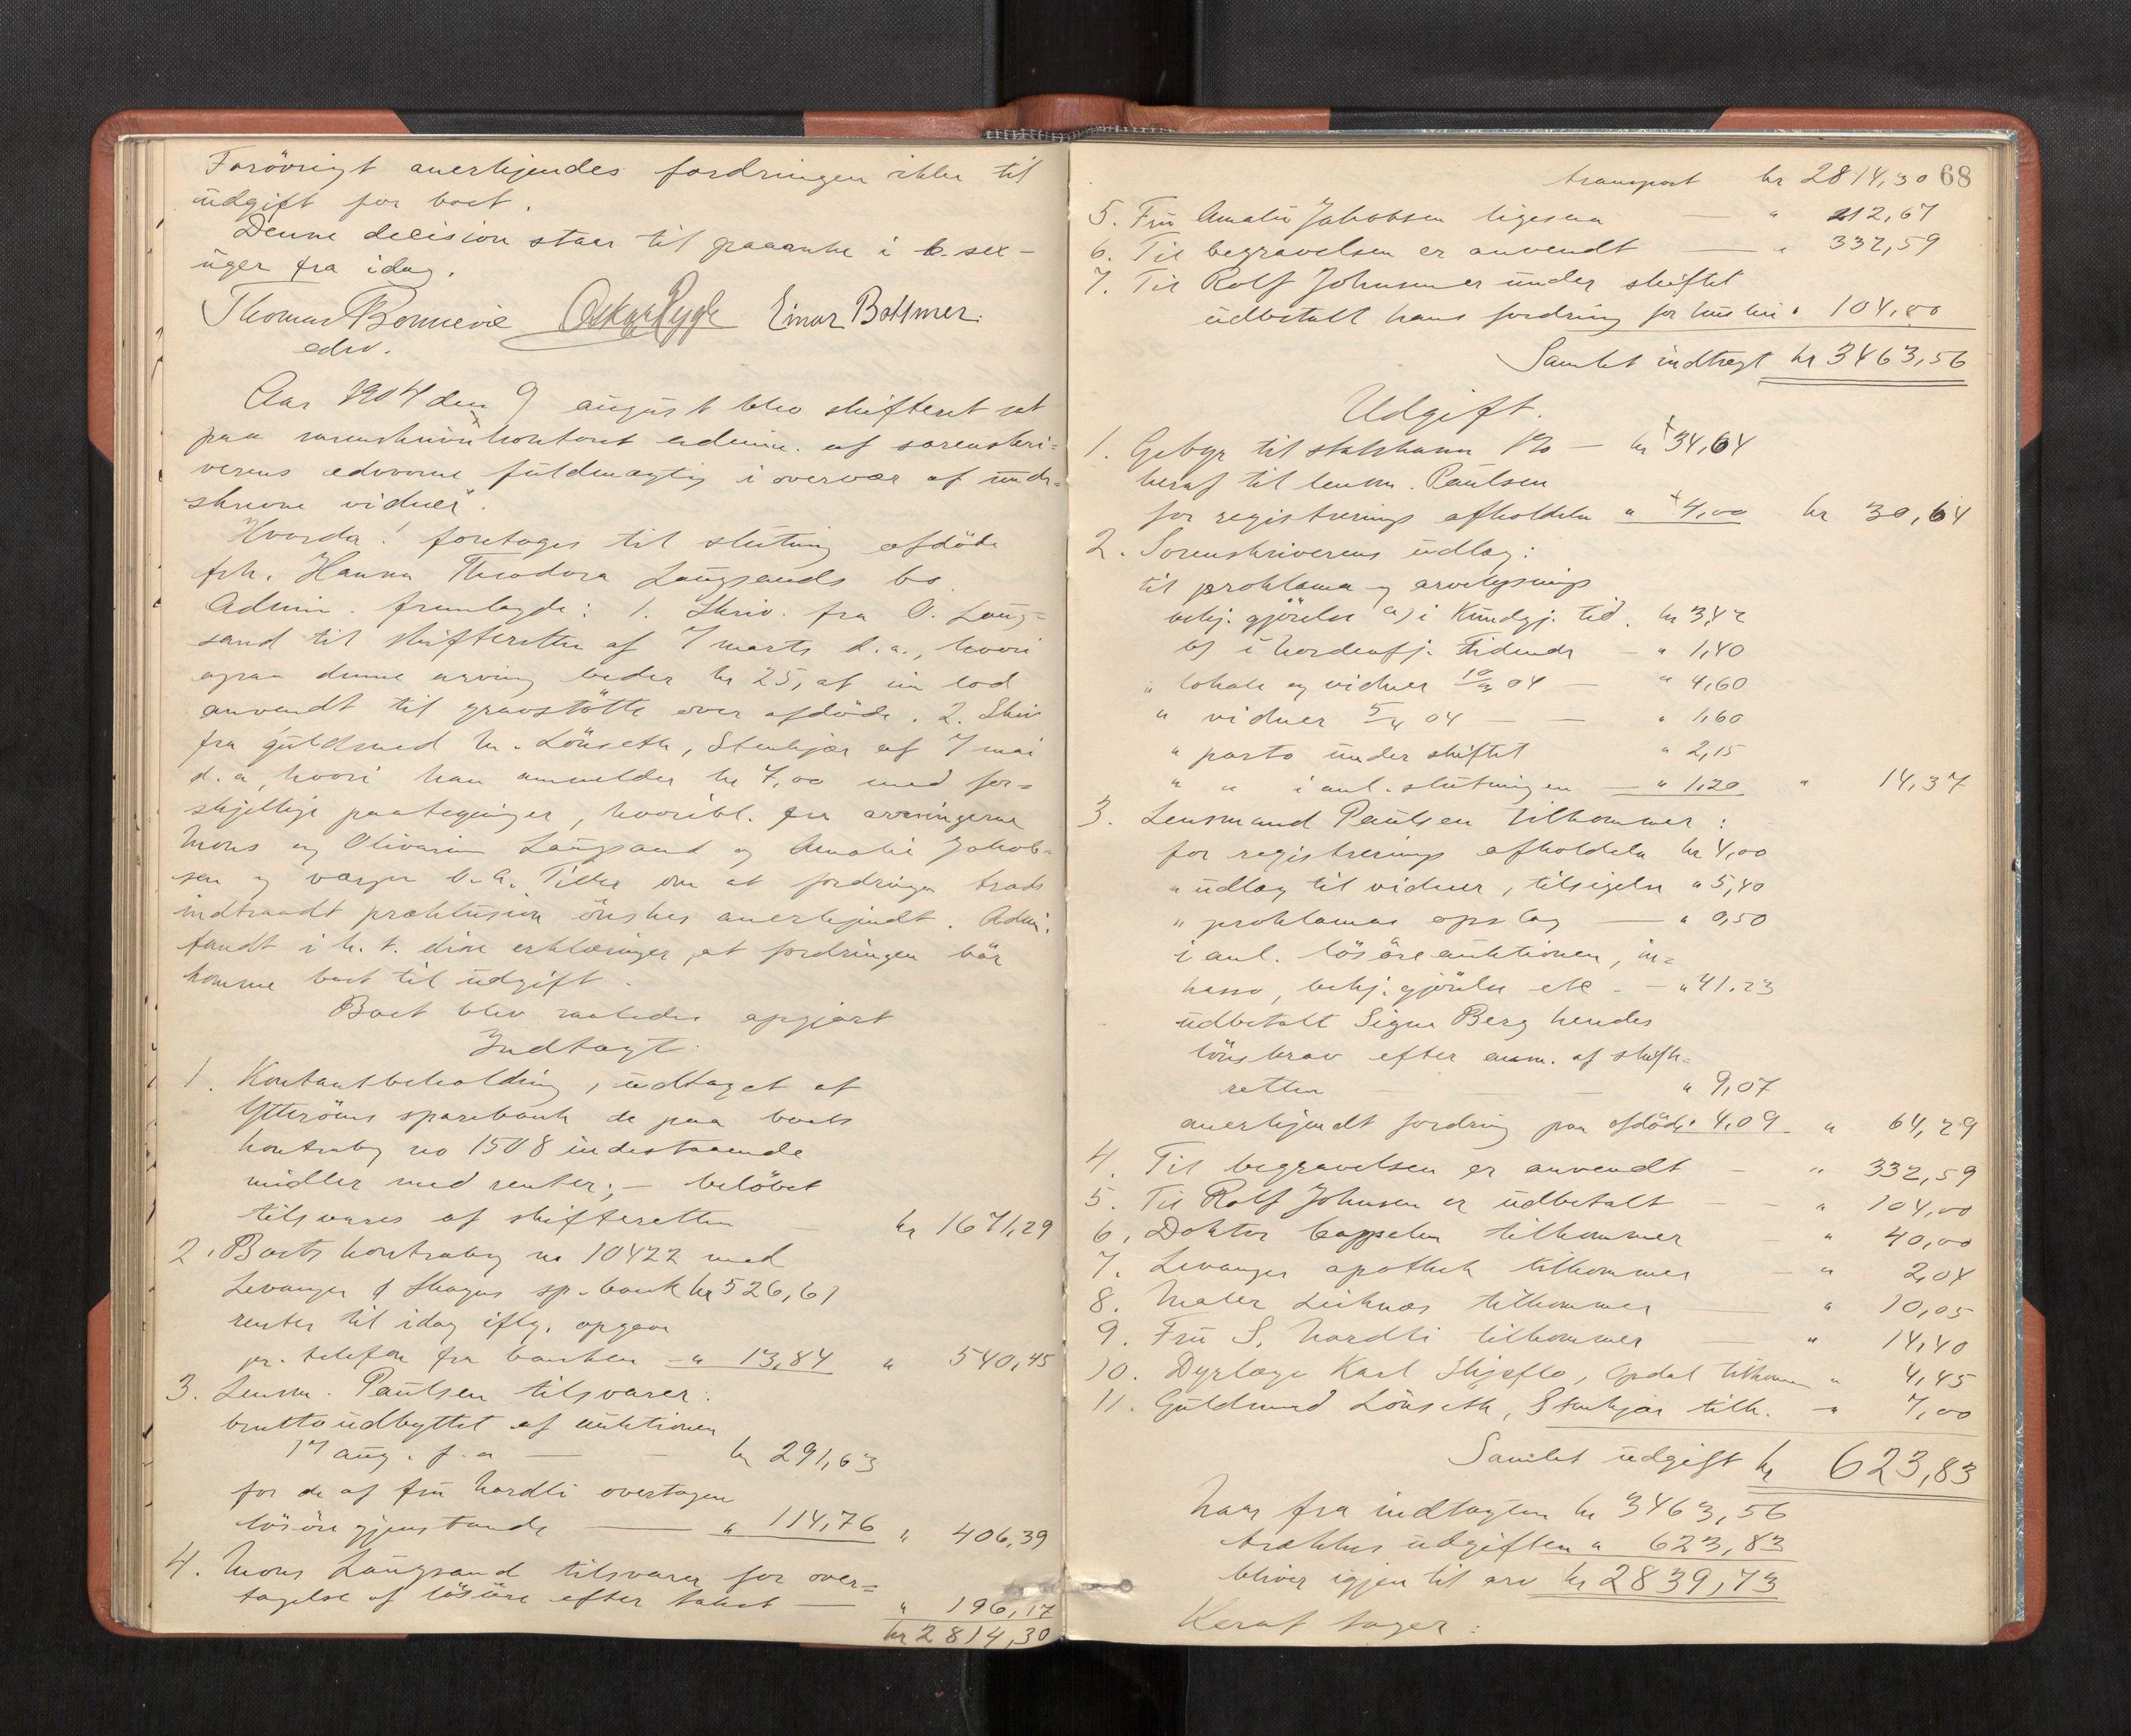 Forövrigt anerkjendes fordringen ikke til
udgift for boet.
Denne decision staar til paaanke i 6. sex-
uger fra idag.
Thomas Bonnevie Oskar Rygh Einar Bottmer.
edsv.
Aar 1904 den 9 august blev skifteret sat
paa sorenskriverkontoret admin. af sorenskri=
verens edsvorne fuldmægtig i overvær af und.=
skrevne vidner.
Hvorda! foretoges til slutning afdöde
frk. Hanna Theodora Langsands bo
Admin. fremlagde: 1. Skriv. fra O. Lang=
sand til skifteretten af 7 marts d.a., hvori
ogsaa denne arving beder kr 25, af sin lod
anvendt til gravstötte over afdöde. 2. Skriv
fra guldsmed M. Lönseth, Stenkjær af 7 mai
d.a, hvori han anmelder kr 7,00 med for=
skjellige paategninger, hvoribl. fra arvingerne
Mons og Olivarius Langsand og Amalie Jakob-
sen og værgen O. A. Tiller om at fordringen trods
indtraadt præklusion önskes anerkjendt. Adm.
fandt i h. t. disse erklæringer, at fordringen bör
komme boet til udgift.
Boet blev saaledes opgjort
Indtægt.
1. Kontantbeholdning, udtaget af
Ytteröens sparebank de paa boets
kontrabog no 1508 indestaaende
midler med renter; – belöbet
tilsvares af skifteretten — kr 1671,29
2. Boets kontrabog no 10422 med
Levanger & Skogns sp.-bank kr 526,61
renter til idag iflg. opgave
pr. telefon fra banken – " 13,84 " 540,45
3. Lensm. Paulsen tilsvarer:
bruttoudbyttet af auktionen
17 aug. f.a — — kr 291,63
for de af fru Nordli overtagne
lösöregjenstande — " 114,76 " 406,39
4. Mons Langsand tilsvarer for over=
tagelse af lösöre efter takst — " 196,17
kr 2814,30
68
transport kr 2814,30
5. Fru Amalie Jakobsen ligesaa — " 212,67
6. Til begravelsen er anvendt — " 332,59
7. Til Rolf Johnsen er under skiftet
udbetalt hans fordring for husleie " 104,00
Samlet indtægt kr 3463,56
Udgift.
1. Gebyr til statskassen 1% — kr 34,64
heraf til lensm. Paulsen
for registrerings afholdelse " 4,00 kr 30,64
2. Sorenskriverens udlæg:
til proklama og arvelysnings
bekj.gjörelse a) i Kundgj. tid. kr 3,42
b) i Nordenfj. Tidende – " 1,40
" lokale og vidner 10/3 04 — " 4,60
" vidner 5/4 04 — — " 1,60
" porto under skiftet " 2,15
" " i anl. slutningen — " 1,20 " 14,37
3. Lensmand Paulsen tilkommer:
for registrerings afholdelse kr 4,00
" udlæg til vidner, tilsigelse " 5,40
" proklamas opslag — " 0,50
i anl. lösöreauktionen, in=
kasso, bekj.gjörelse etc. – " 41.23
udbetalt Signe Berg hendes
lönskrav efter anm. af skifte-
retten — " 9,07
anerkjendt fordring paa afdöde " 4,09 " 64,29
4. Til begravelsen er anvendt – " 332,59
5. Til Rolf Johnsen er udbetalt – " 104,00
6. Doktor Cappelen tilkommer – " 40,00
7. Levanger apothek tilkommer – " 2,04
8. Maler Leiknes tilkommer — " 10,05
9. Fru S. Nordli tilkommer — " 14,40
10. Dyrlæge Karl Skjeflo, Opdal tilkommer " 4,45
11. Guldsmed Lönseth, Stenkjær tilk. — " 7,00
Samlet udgift kr 623,83
Naar fra indtægten kr 3463,56
trækkes udgiften " 623,83
bliver igjen til arv kr 2839,73
Heraf tager: